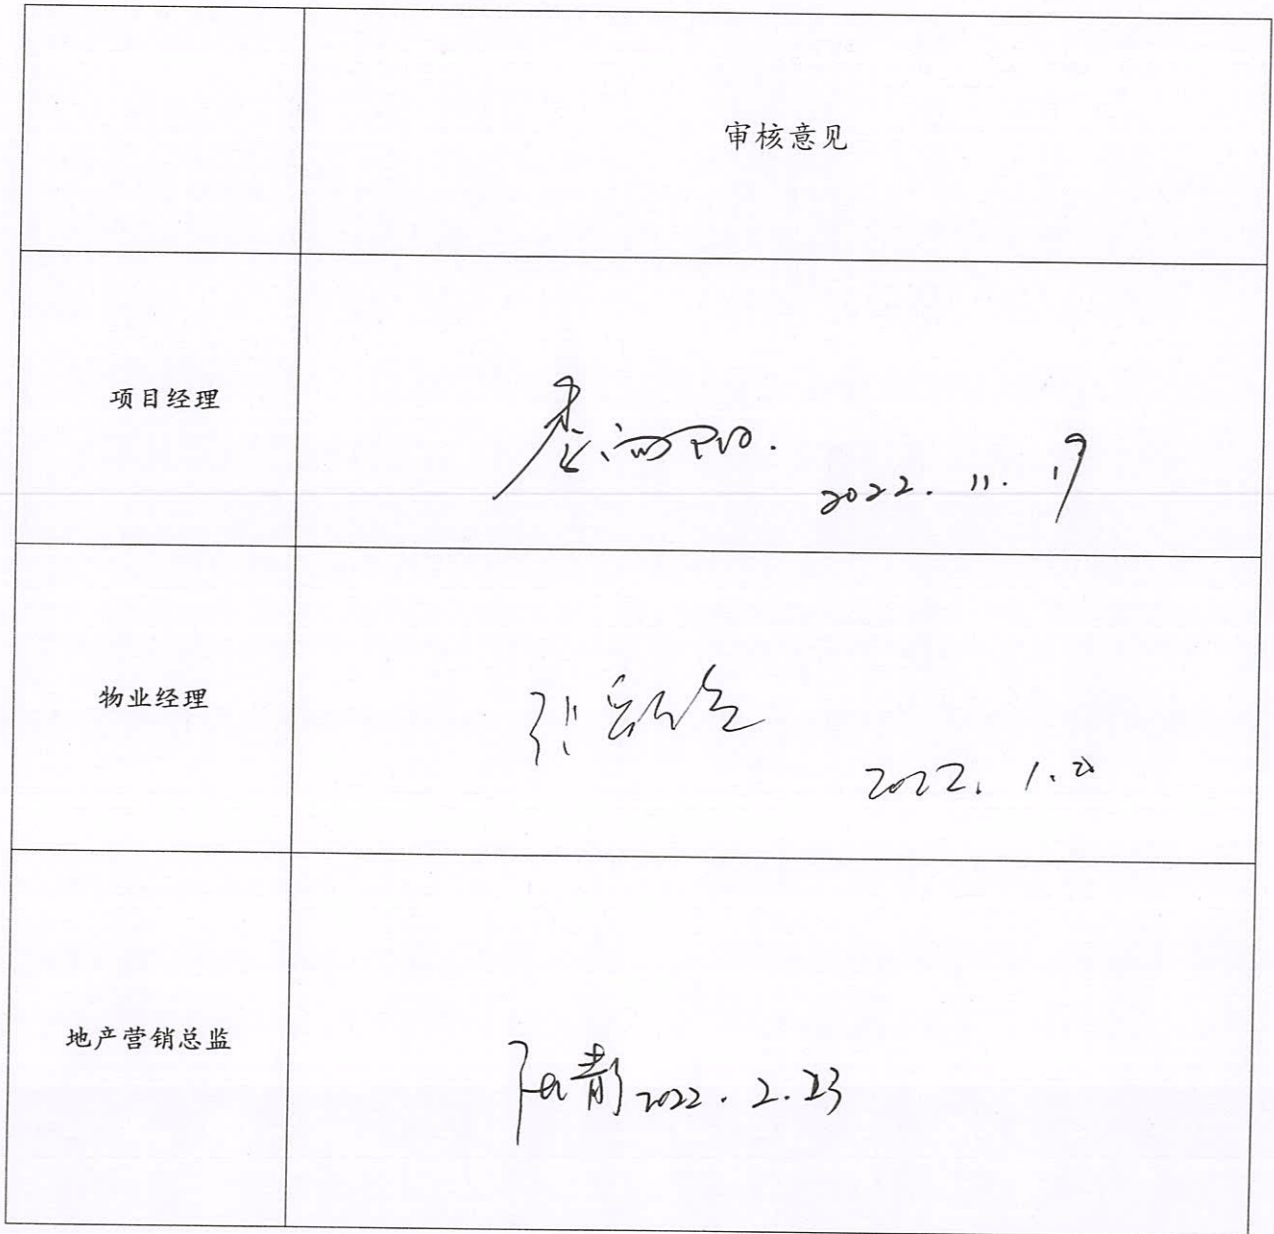 审核意见
项目经理
2022. 11. 17
物业经理
2022. 1.
地产营销总监
2022. 2. 23